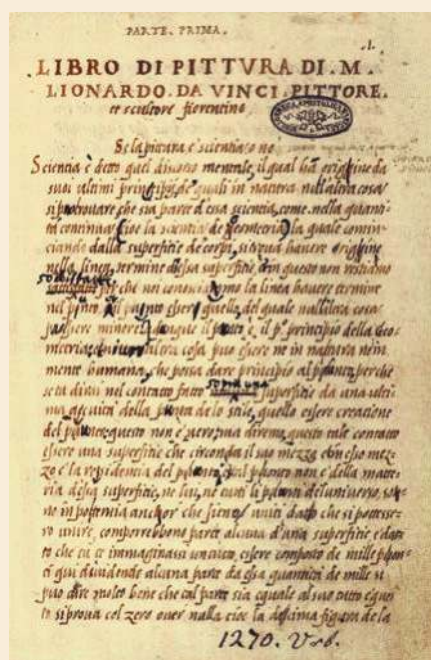 PARTE. PRIMA.
.1.
LIBRO DI PITTVRA DI. M.
LIONARDO. DA VINCI. PITTORE.
et scultore fiorentino
Se la pittura e scientia o no
Scientia è detto quel discorso mentale, il qual ha origine da
suoi ultimi principii, de quali in natura null'altra cosa
si po trovare, che sia parte d'essa scientia, come nella quanti
tà continua cioe la scientia de Geometria la quale comin
ciando dalla superfitie de corpi, si trova havere origine
nella linea, termine d'essa superfitie, et in questo non restiamo
satisfatti
per che noi conosciamo la linea havere termine
nel punto, il punto essere quello, del quale null'altra cosa
po essere minore. dunque il punto è, il p.º principio della Geo
metria, altra cosa puo essere ne in natura ne in
mente humana, che possa dare principio al punto, perche
se tu dirai nel contatto fatto superfitie da una ulti
ma acuità della punta de lo stilo, quello essere creatione
del punto, questo non è vero, ma diremo questo tale contatto
essere una superfitie che circonda il suo mezzo et in esso mez
zo è la residentia del punto, il punto non è della mate
ria de essa superfitie, ne lui, ne tutti li punti de l'universo, so
no in potentia anchor che sieno uniti dato che si potesse
ro unire, comporrebbono parte alcuna d'una superfitie e dato
to che tu te immaginassi un tutto, essere composto da mille pon
ti qui dividendo alcuna parte da essa quantità de mille si
puo dire molto bene che tal parte sia equale al suo tutto e que
to si prova col zero over nulla cioe la decima figura de la
1270. Urb.